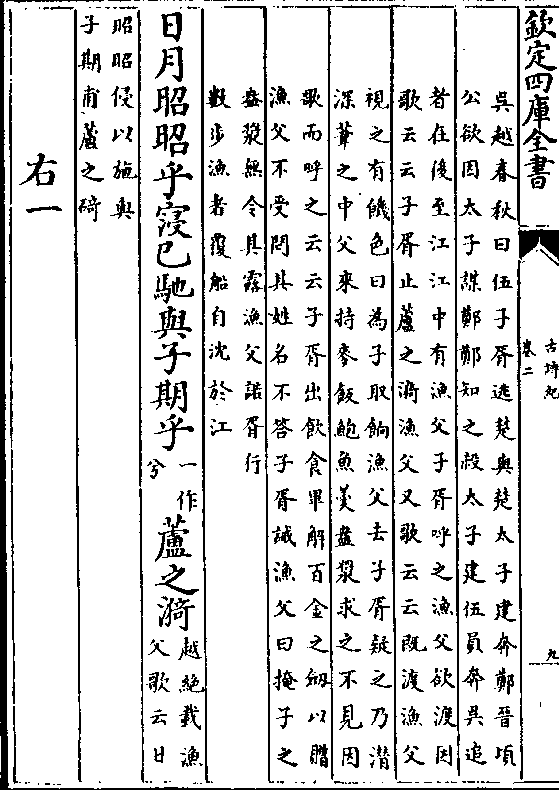 欽定四庫全書
古詩紀
卷二
九
吳越春秋曰伍子胥逃楚與楚太子建奔鄭晉頃
公欲因太子謀鄭鄭知之殺太子建伍員奔吳追
者在後至江江中有漁父子胥呼之漁父欲渡因
歌云云子胥止蘆之漪漁父又歌云云既渡漁父
視之有饑色曰為子取餉漁父去子胥疑之乃潛
深葦之中父來持麥飯鮑魚羮盎漿求之不見因
歌而呼之云云子胥出飲食畢解百金之劔以贈
漁父不受問其姓名不答子胥誡漁父曰掩子之
盎漿無令其露漁父諾胥行
數步漁者覆船自沈於江
日月昭昭乎寖已馳與子期乎
一作
兮
蘆之漪
越絶載漁
父歌云日
昭昭侵以施與
子期甫蘆之碕
右一